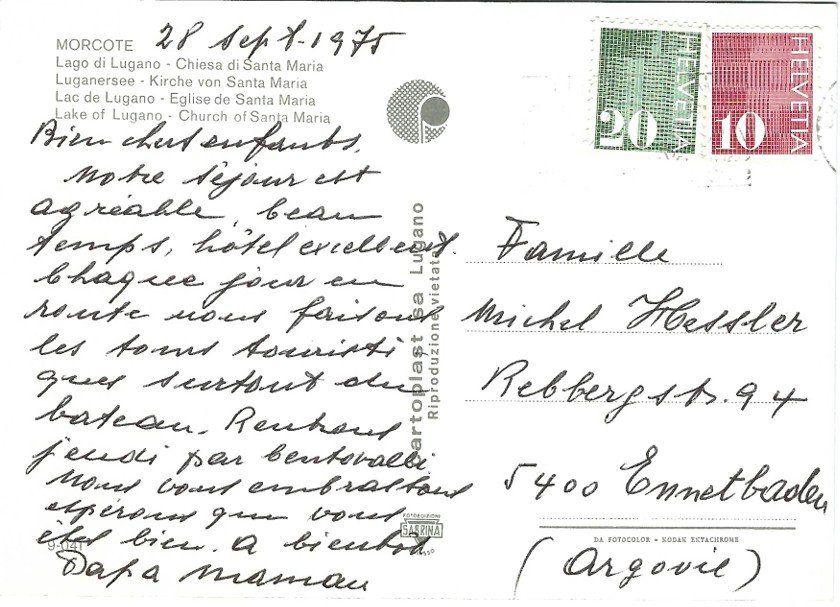 MORCOTE 28 sept. 1975
Lago di Lugano - Chiesa di Santa Maria
Luganersee - Kirche von Santa Maria
Lac de Lugano - Eglise de Santa Maria
Lake of Lugano - Church of Santa Maria
Bien chers enfants,
Notre séjour est
agréable, beau
temps, hôtel excellent.
Chaque jour en
route nous faisons
les tours touristi
ques surtout en
bateau. Rentrons
jeudi par Centovalli
Nous vous embrassons
espérons que vous
êtes bien. A bientot
Papa Maman
9-041
artoplast sa Lugano
Riproduzione vietata
FOTOEDIZIONI
SABRINA
HELVETIA
20
HELVETIA
10
Famille
Michel Hessler
Rebbergstr. 94
5400 Ennetbaden
DA FOTOCOLOR - KODAK EKTACHROME
(Argovie)